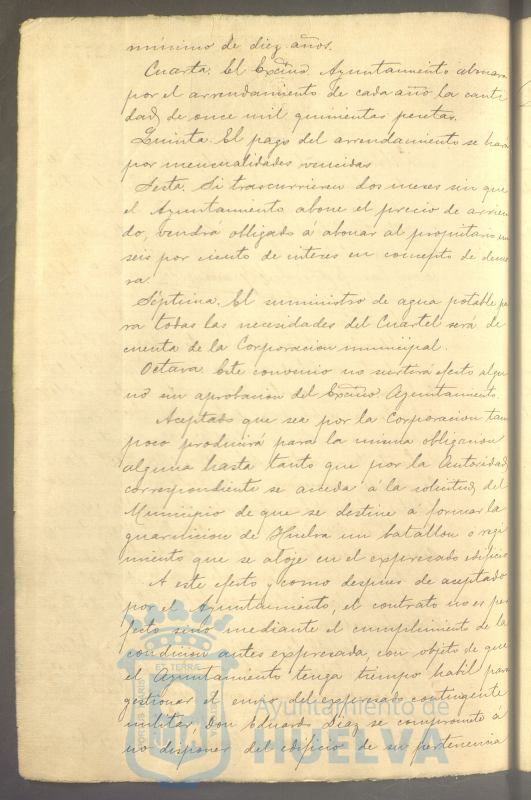 minimo de diez años.
Cuarta. El Excmo. Ayuntamiento abonara
por el arrendamiento de cada año la canti
dad de once mil quinientas pesetas.
Quinta. El pago del arrendamiento se hará
por mensualidades vencidas
Sesta. Si trascurriesen dos meses sin que
el Ayuntamiento abone el precio de arrien
do, vendra obligado á abonar al propietario un
seis por ciento de interes en concepto de demo
ra.
Séptima. El suministro de agua potable pa
ra todas las necesidades del Cuartel será de
cuenta de la Corporacion municipal.
Octava. Este convenio no surtirá efecto algu
no sin aprobacion del Excmo. Ayuntamiento.
Aceptado que sea por la Corporacion tam
poco producirá para la misma obligacion
alguna hasta tanto que por la Autoridad
correspondiente se acceda á la solicitud del
Municipio de que se destine á formar la
guarnicion de Huelva un batallon o regi
miento que se aloje en el expresado edificio
A este efecto y como despues de aceptado
por el Ayuntamiento, el contrato no es per
fecto sino mediante el cumplimiento de la
condicion antes expresada, con objeto de que
el Ayuntamiento tenga tiempo habil para
gestionar el envio del expresado contingente
militar, Don Eduardo Diaz se compromete á
no disponer del edificio de su pertenencia
PORTUS MARIS
ET TERRÆ
Ayuntamiento de
HUELVA